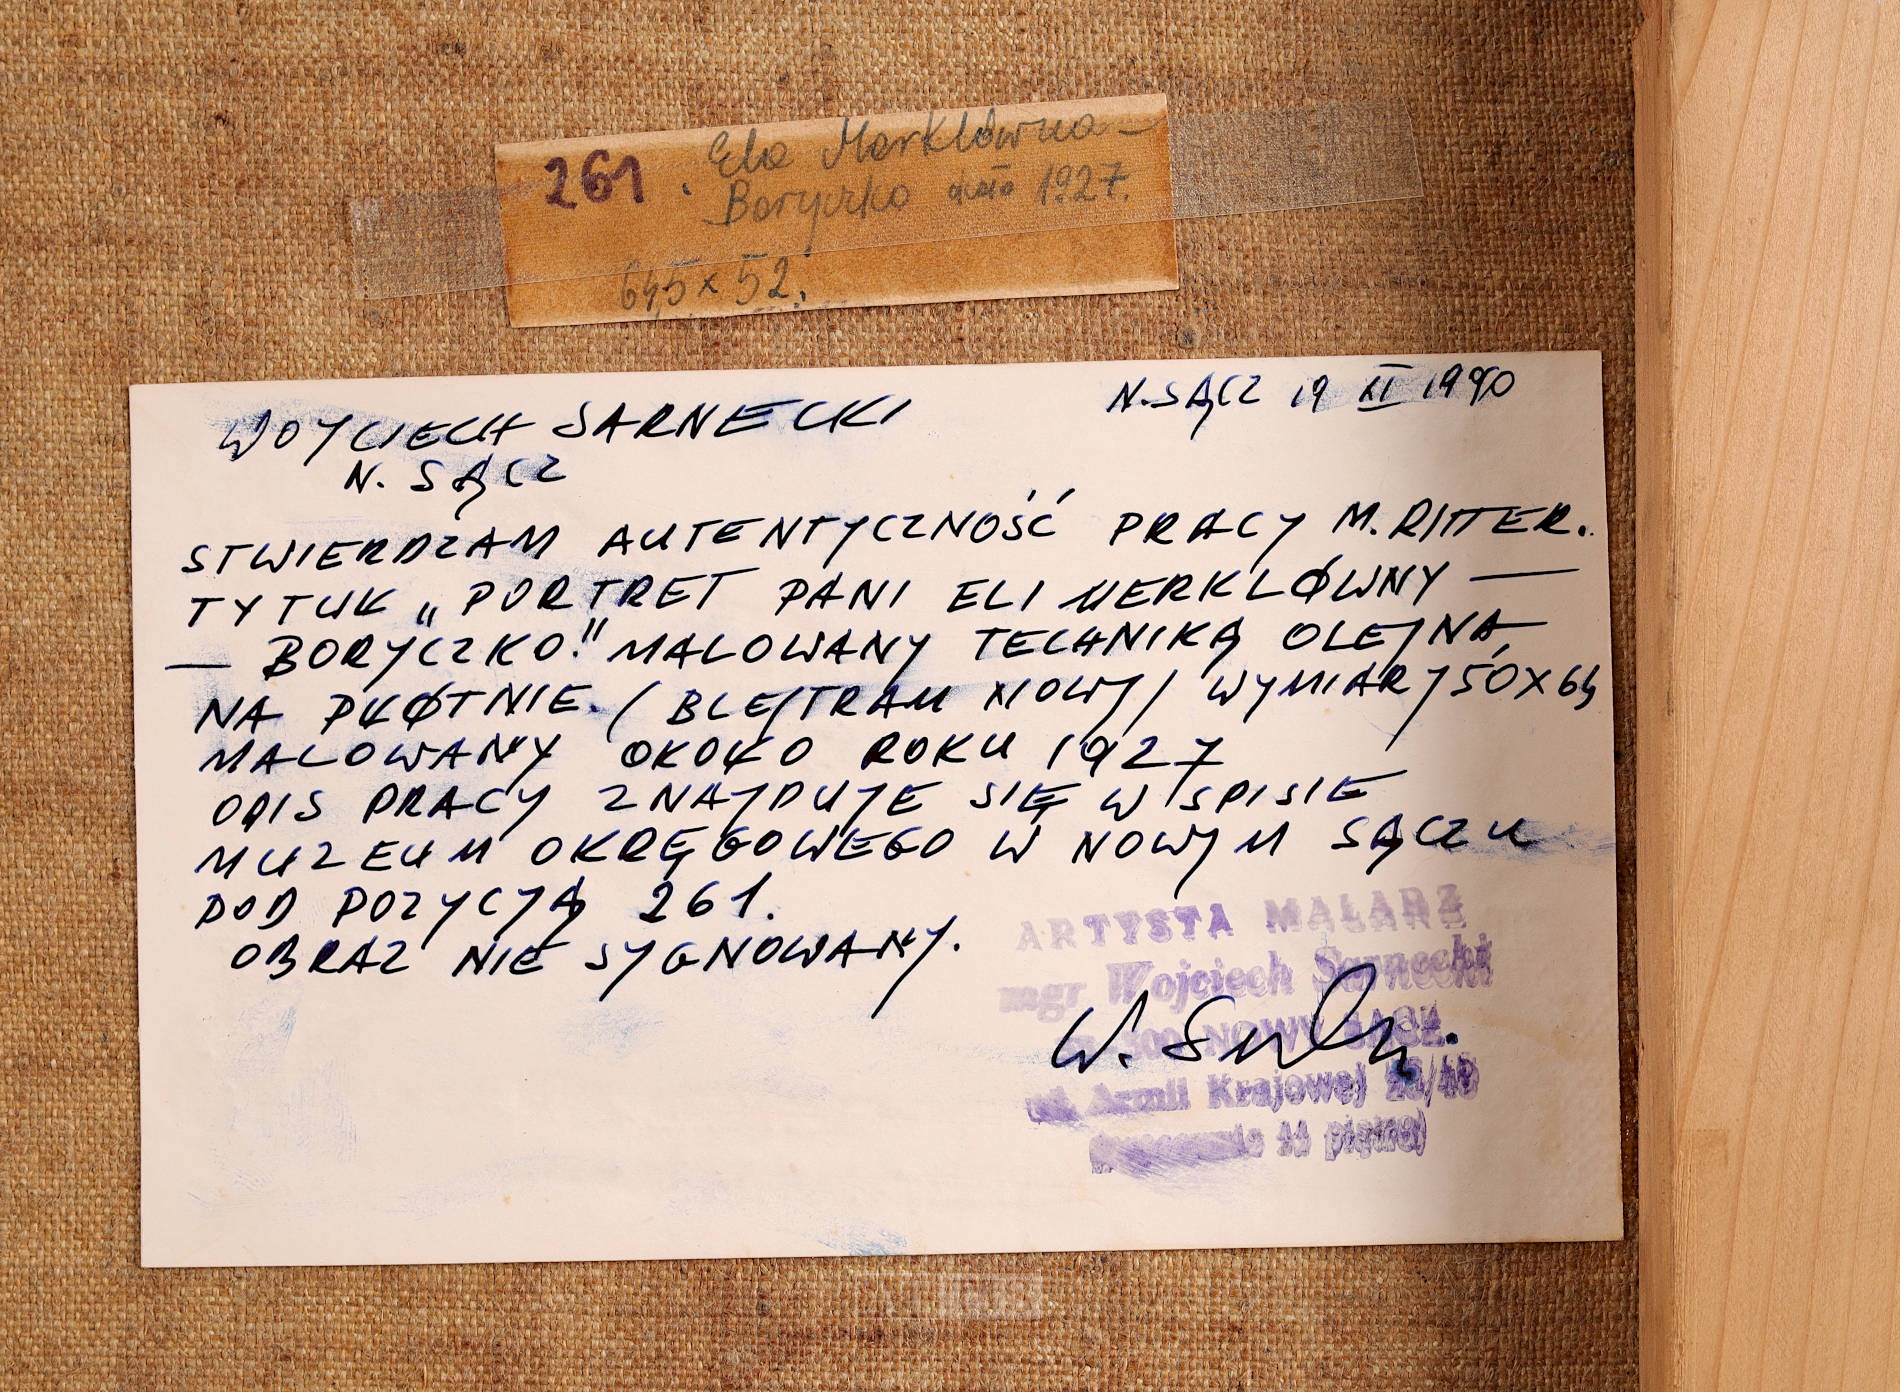 261. Ela Marklówna-
Boryczko około 1927.
64,5 x 52.
N. SĄCZ 19 XI 1990
WOJCIECH SARNECKI
N. SĄCZ
STWIERDZAM AUTENTYCZNOŚĆ PRACY M. RITTER.
TYTUŁ „PORTRET PANI ELI MERKLÓWNY —
— BORYCZKO." MALOWANY TECHNIKĄ OLEJNĄ
NA PŁÓTNIE. / BLEJTRAM NOWY / WYMIARY 50 X 64
MALOWANY OKOŁO ROKU 1927
OPIS PRACY ZNAJDUJE SIĘ W SPISIE
MUZEUM OKRĘGOWEGO W NOWYM SĄCZU
POD POZYCJĄ 261.
OBRAZ NIE SYGNOWANY.
ARTYSTA MALARZ
mgr Wojciech Sarnecki
NOWY SĄCZ
W.
ul. Armii Krajowej
11 piętro)